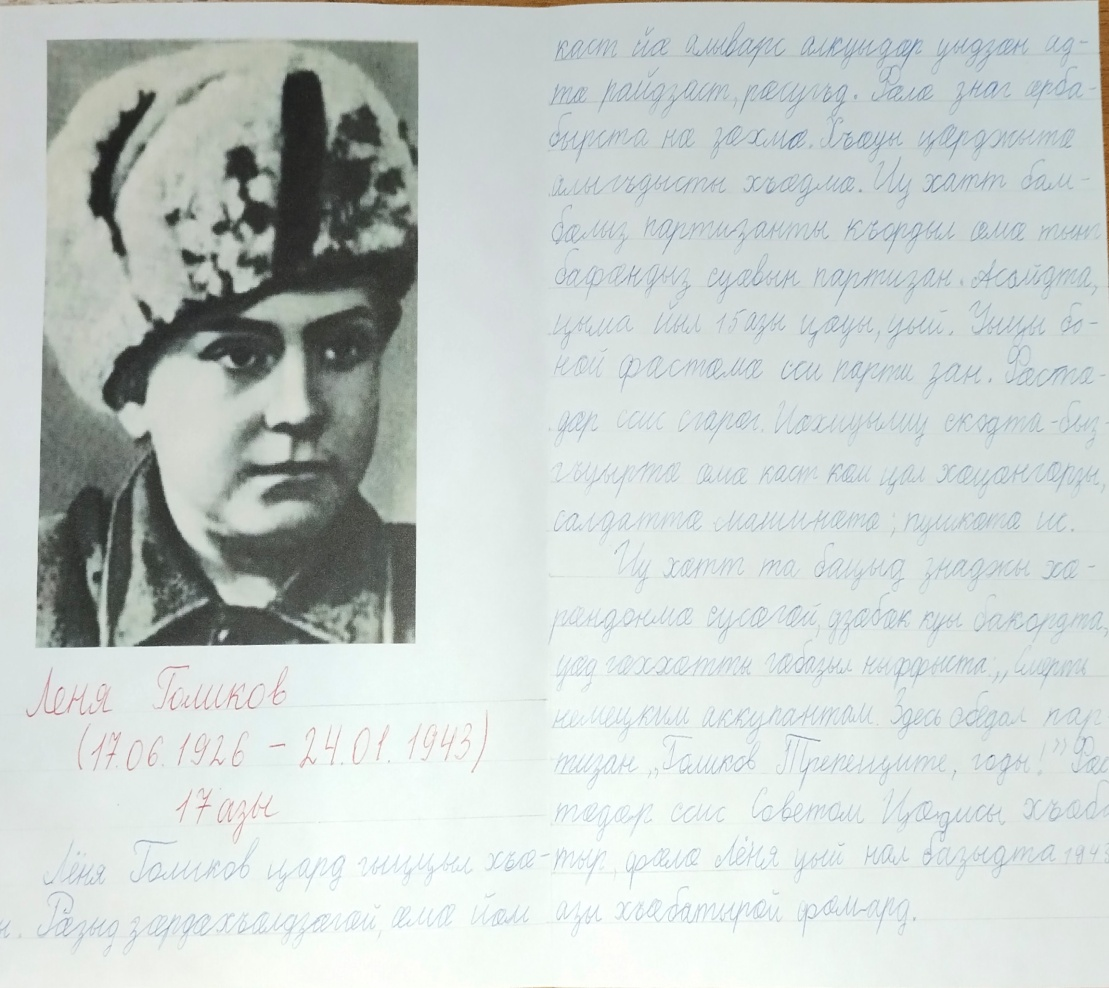 Леня Голиков
(17.06.1926 – 24.01.1943)
17 азы
Лёня Голиков цард гыццыл хъæ-
н. Рæзыд зæрдæхъæлдзæгæй, æмæ йæм
каст йæ алыварс алкуыдæр уыдзæн æд-
тæ райдзаст, рæсугъд. Фæлæ знаг æрбæ-
бырстæ нæ зæхмæ. Хъæуы цæрджытæ
алыгъдысты хъæдмæ. Иу хатт бам-
бæлыз партизанты къордыл æмæ тынг
бафæндыз суæвын партизан. Асайдта,
цыма йыл 15 азы цæуы, уый. Уыцы бо-
нæй фæстæмæ сси партизан. Фæстæ-
дæр ссис сгарæг. скодта-быз-
гъуыртæ æмæ каст кæм цал хæцæнгарзы,
салдаттæ машинæтæ, пушкæтæ ис.
Иу хатт та бацыд знаджы хæ-
рæндонмæ сусæгæй, дзæбæх куы бакордта,
уæд гæххæтты гæбазыл ныффыста: „Смерть
немецким аккупантам. Здесь обедал пар-
тизан „Голиков Трепещите, гады!” Фæс
тæдæр ссис Советон Цæдисы хъæбæ
тыр, фæлæ Лёня уый нал базыдта 1943
азы хъæбатырæй фæмард.